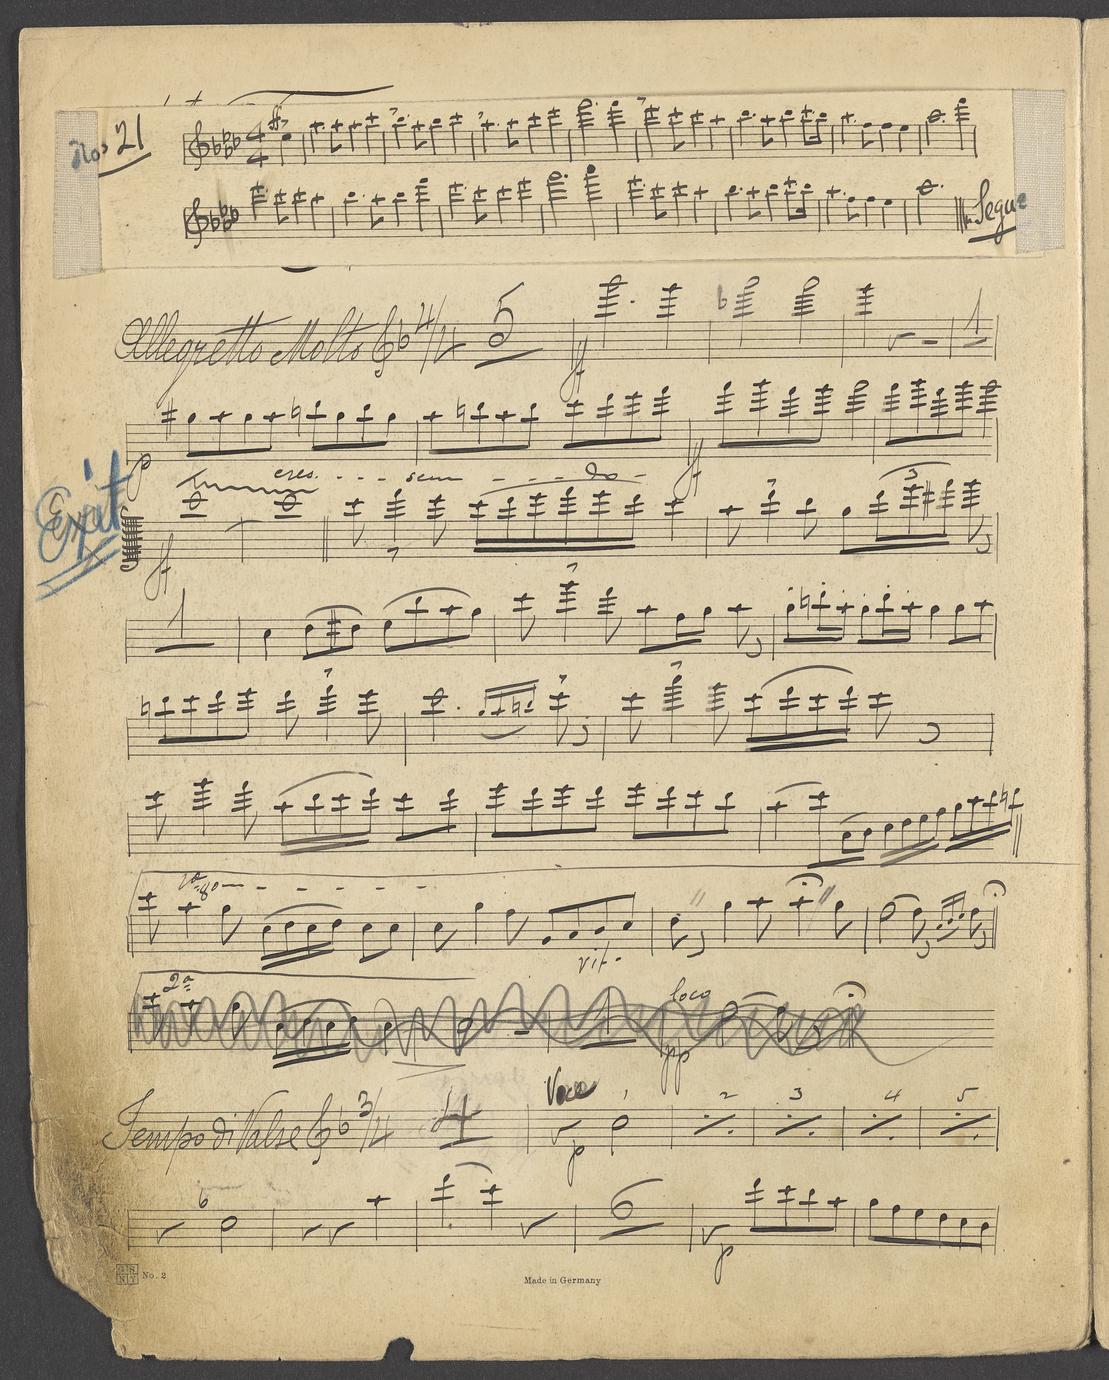 No. 21
4 4
ff
Segue
Allegretto Molto 4/4 5
ff
1
p cres. - - - scen - - - do - ff
Exit
ff
3
1
1a 8o - - - - -
rit.
2a
loco
pp
Tempo di Valse 3/4 4
Voce
p
1 2 3 4 5
6
6
p
GS NY No. 2
Made in Germany